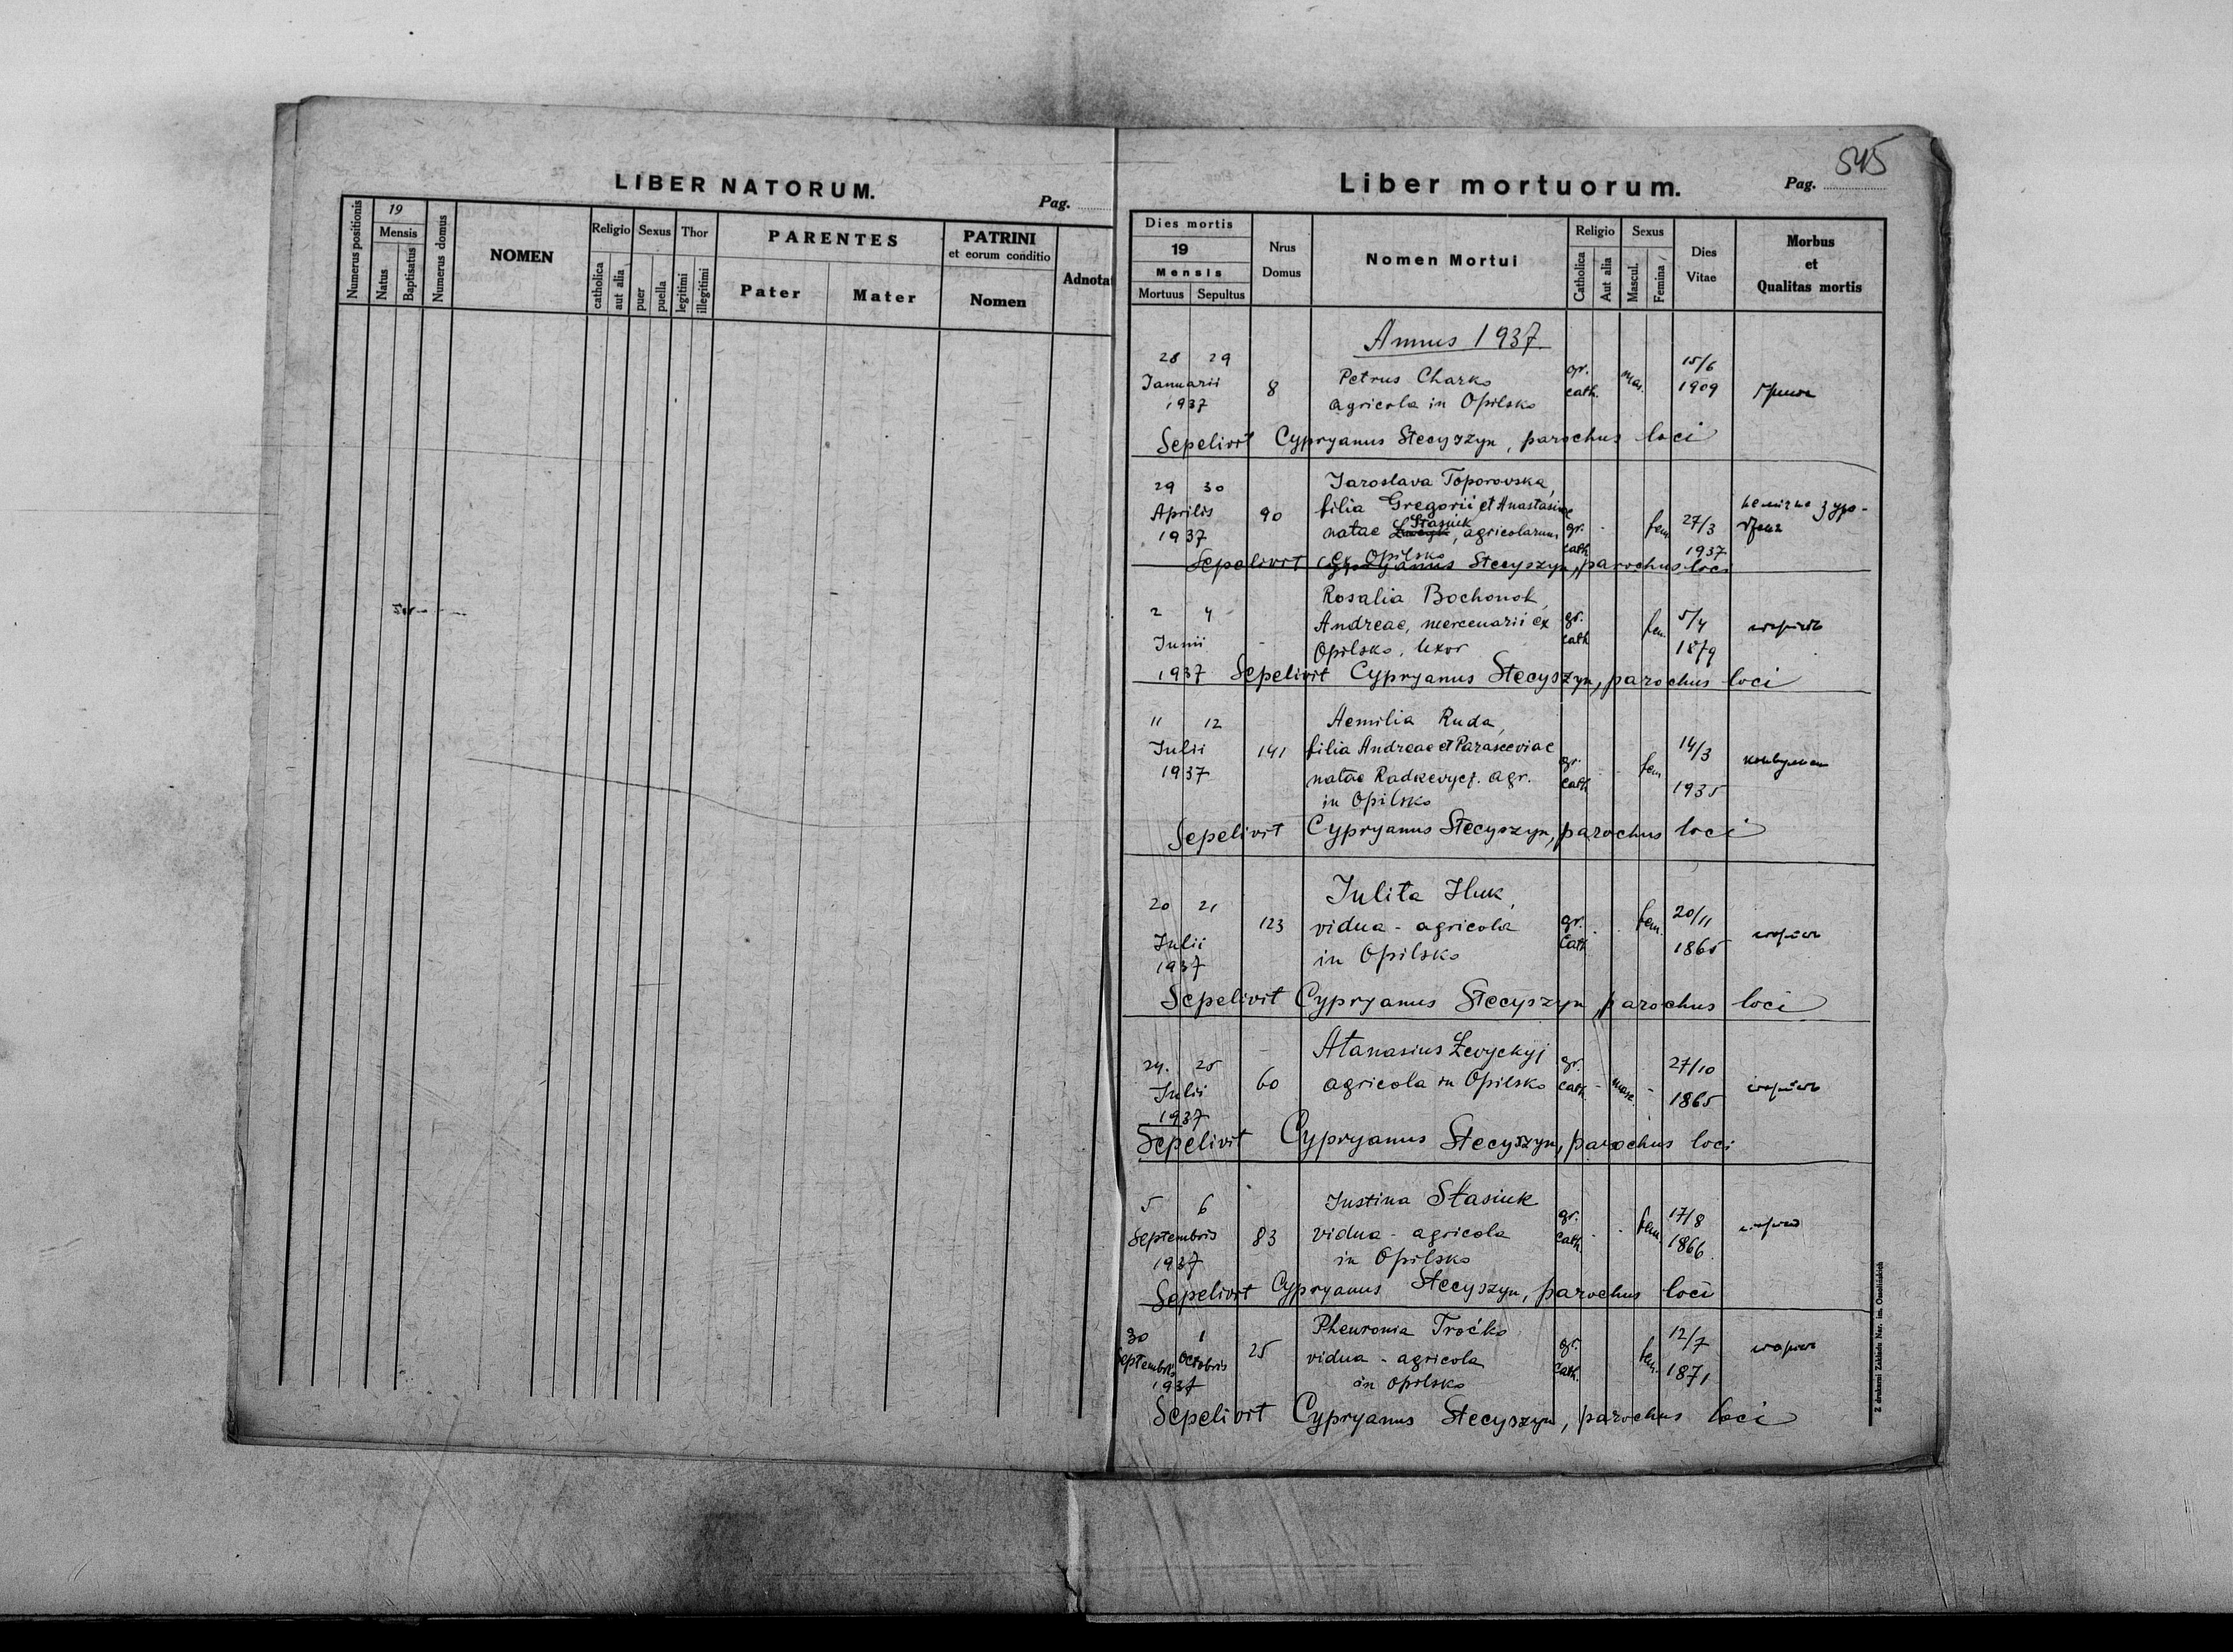 LIBER NATORUM.
Pag.
Numerus positionis
19
Mensis
Natus
Baptisatus
Numerus domus
NOMEN
Religio
catholica
aut alia
Sexus
puer
puella
Thor
legitimi
illegitimi
PARENTES
Pater
Mater
PATRINI
et eorum conditio
Nomen
Adnota
545
Liber mortuorum.
Pag.
Dies mortis
19
Mensis
Mortuus Sepultus
Nrus
Domus
Nomen Mortui
Religio
Catholica
Aut alia
Sexus
Mascul.
Femina
Dies
Vitae
Morbus
et
Qualitas mortis
Annus 1937.
28 29
Januarii
1937
8
Petrus Charko
agricola in Opilsko
gr.
cath.
mas.
15/6
1909
Sepelivit Cypryanus Stecyszyn, parochus loci
29 30
Aprilis
1937
90
Jaroslava Toporovska,
filia Gregorii et Anastasiae
natae Stasiuk, agricolarum
ex Opilsko
gr.
cath
fem
27/3
1937
Sepelivit Cypryanus Stecyszyn, parochus loci
2 4
Junii
1937
Rosalia Bochonok,
Andreae, mercenarii ex
Opilsko, uxor
gr.
cath
fem.
5/4
1879
Sepelivit Cypryanus Stecyszyn, parochus loci
11 12
Julii
1937
141
Aemilia Ruda,
filia Andreae et Parasceviae
natae Radkevycz. agr.
in Opilsko
gr.
cath
fem
14/3
1935
Sepelivit Cypryanus Stecyszyn, parochus loci
20 21
Julii
1937
123
Julita Huk,
vidua - agricola
in Opilsko
gr.
Cath
fem.
20/11
1865
Sepelivit Cypryanus Stecyszyn, parochus loci
24. 25
Julii
1937
60
Atanasius Levyckyj
agricola in Opilsko
gr.
cath.
masc.
27/10
1865
Sepelivit Cypryanus Stecyszyn, parochus loci
5 6
Septembris
1937
83
Justina Stasiuk
vidua - agricola
in Opilsko
gr.
cath.
fem.
17/8
1866.
Sepelivit Cypryanus Stecyszyn, parochus loci
30 1
Septembris Octobris
1937
25
Pheuronia Troćko,
vidua - agricola
in Opilsko
gr.
cath.
fem.
12/7
1871
Sepelivit Cypryanus Stecyszyn, parochus loci
Z drukarni Zakładu Nar. im. Ossolińskich